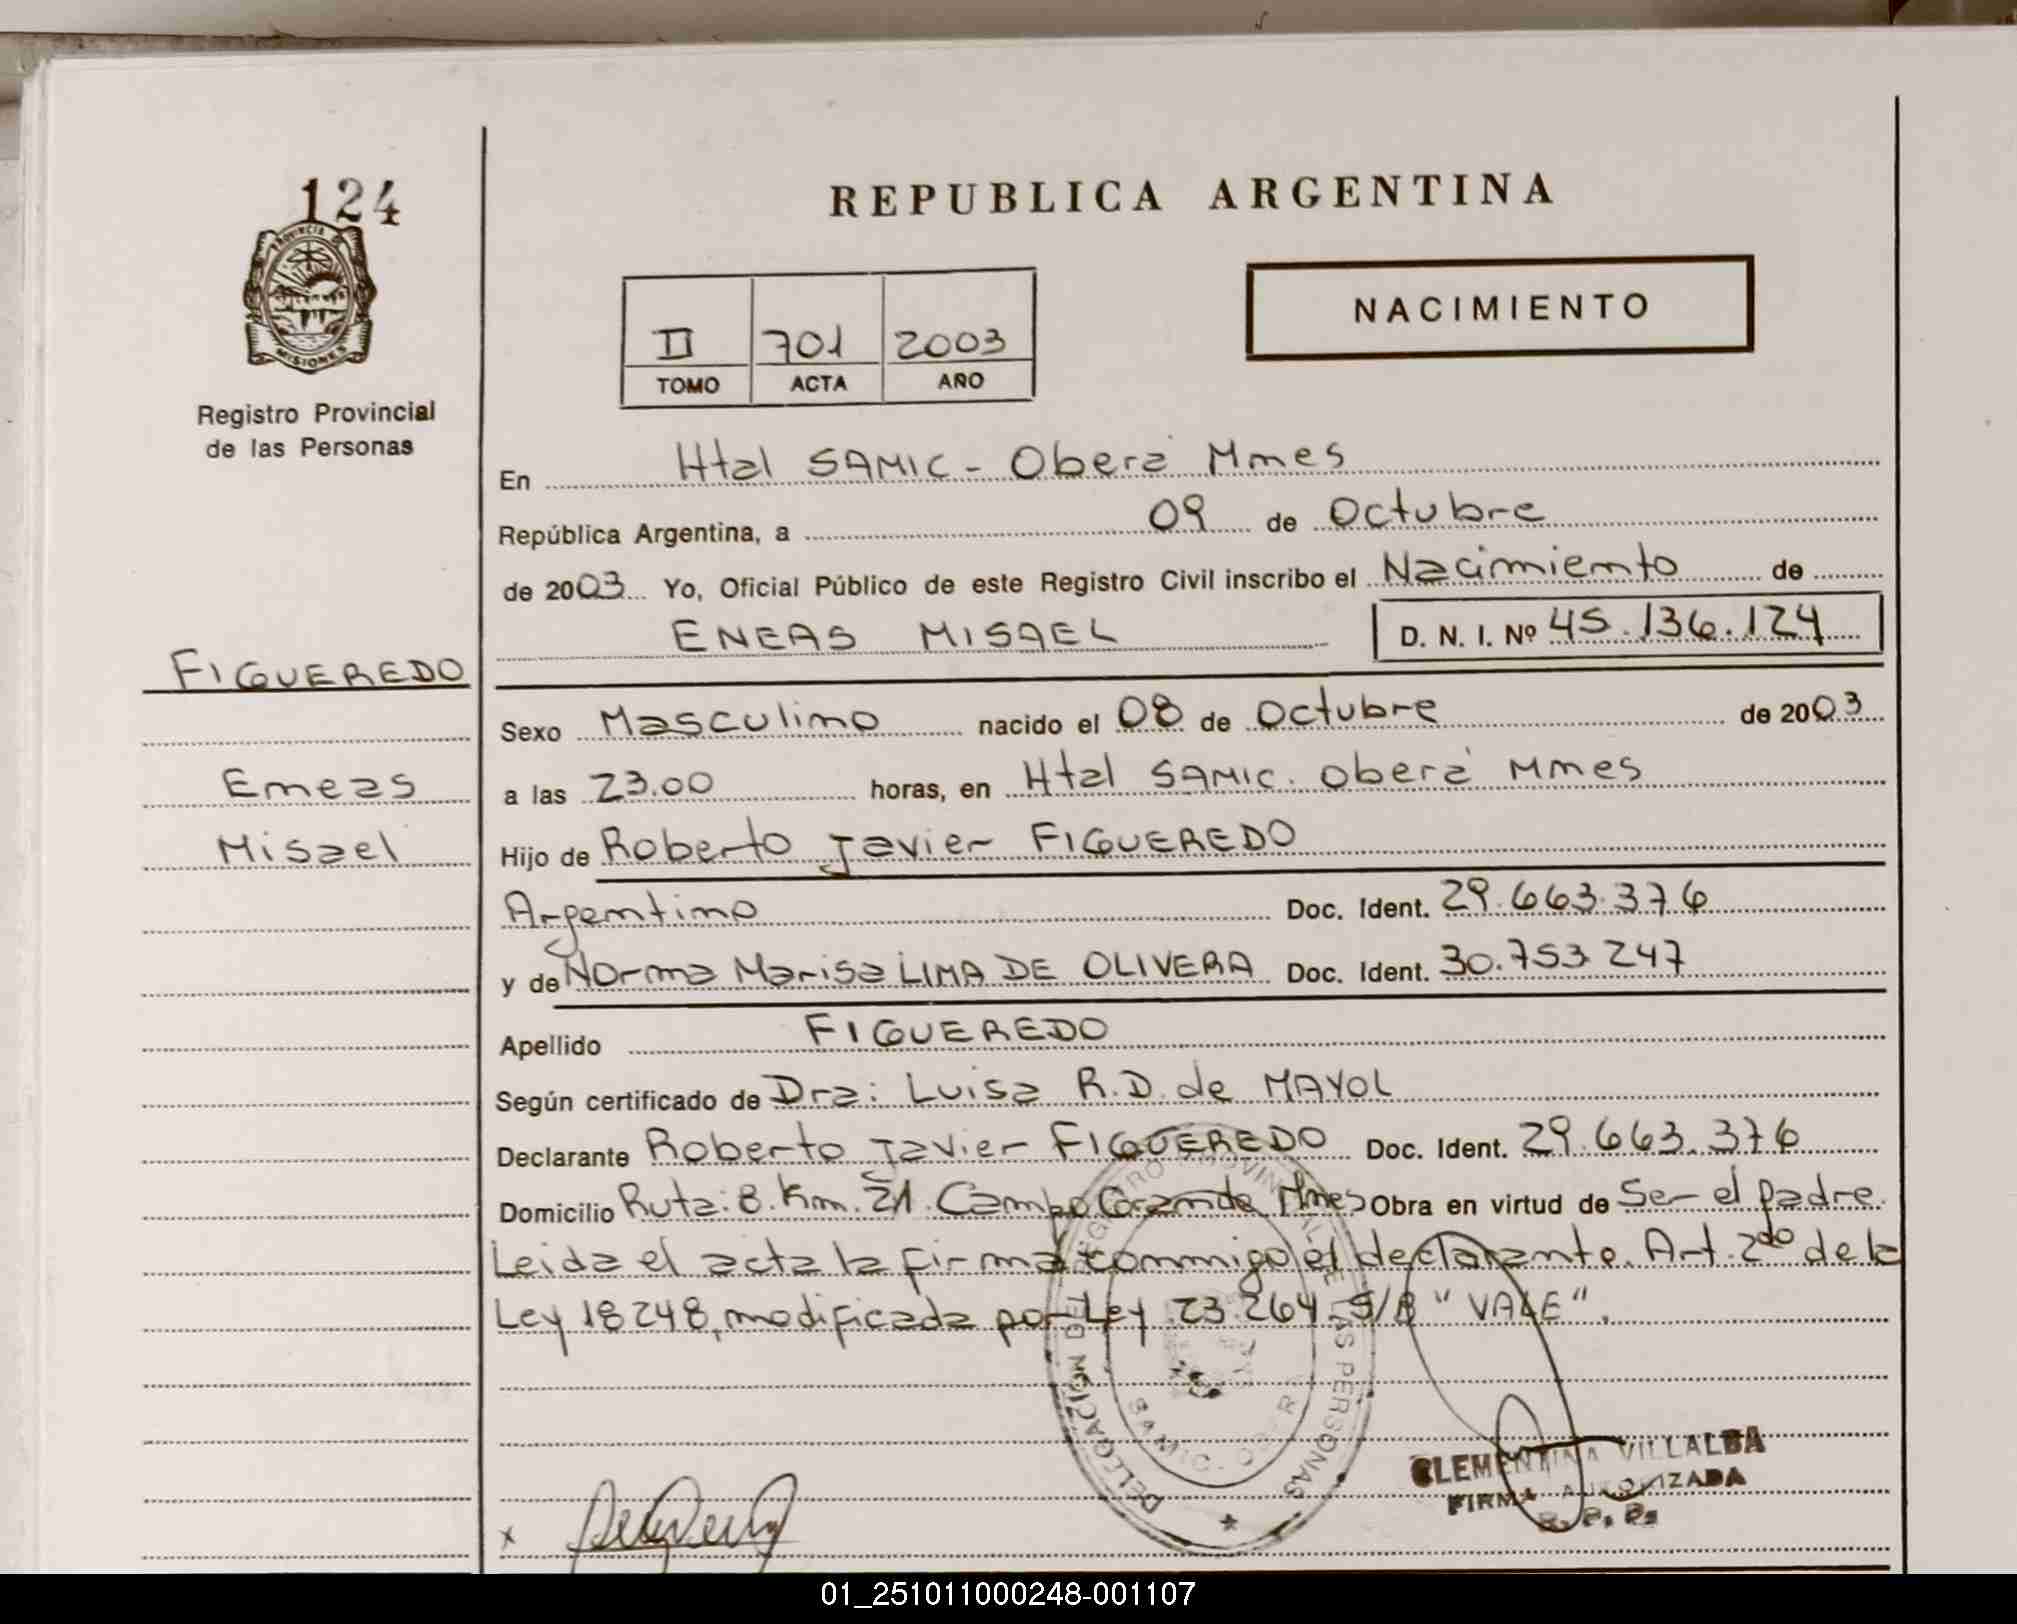 124
PROVINCIA DE
MISIONES
Registro Provincial
de las Personas
REPUBLICA ARGENTINA
NACIMIENTO
II 701 2003
TOMO ACTA AÑO
En Htal SAMIC - Oberá Mnes
República Argentina, a 09 de Octubre
de 2003 Yo, Oficial Público de este Registro Civil inscribo el Nacimiento de
ENEAS MISAEL D. N. I. Nº 45.136.124
FIGUEREDO
Eneas
Misael
Sexo Masculino nacido el 08 de Octubre de 2003
a las 23.00 horas, en Htal SAMIC. Oberá Mnes
Hijo de Roberto Javier FIGUEREDO
Argentino Doc. Ident. 29.663.376
y de Norma Marisa LIMA DE OLIVERA Doc. Ident. 30.753.247
Apellido FIGUEREDO
Según certificado de Dra: Luisa R.D. de MAYOL
Declarante Roberto Javier FIGUEREDO Doc. Ident. 29.663.376
Domicilio Ruta: 8. Km. 21. Campo Grande Mnes Obra en virtud de Ser el padre.
Leida el acta la firma conmigo el declarante. Art. 2do de la
Ley 18248, modificada por Ley 23.264 S/B "VALE".
REGISTRO PROVINCIAL DE LAS PERSONAS
DELEGACION
SAMIC - OBERA
CLEMENTINA VILLALBA
FIRMA AUTORIZADA
R. P. P.
x
01_251011000248-001107